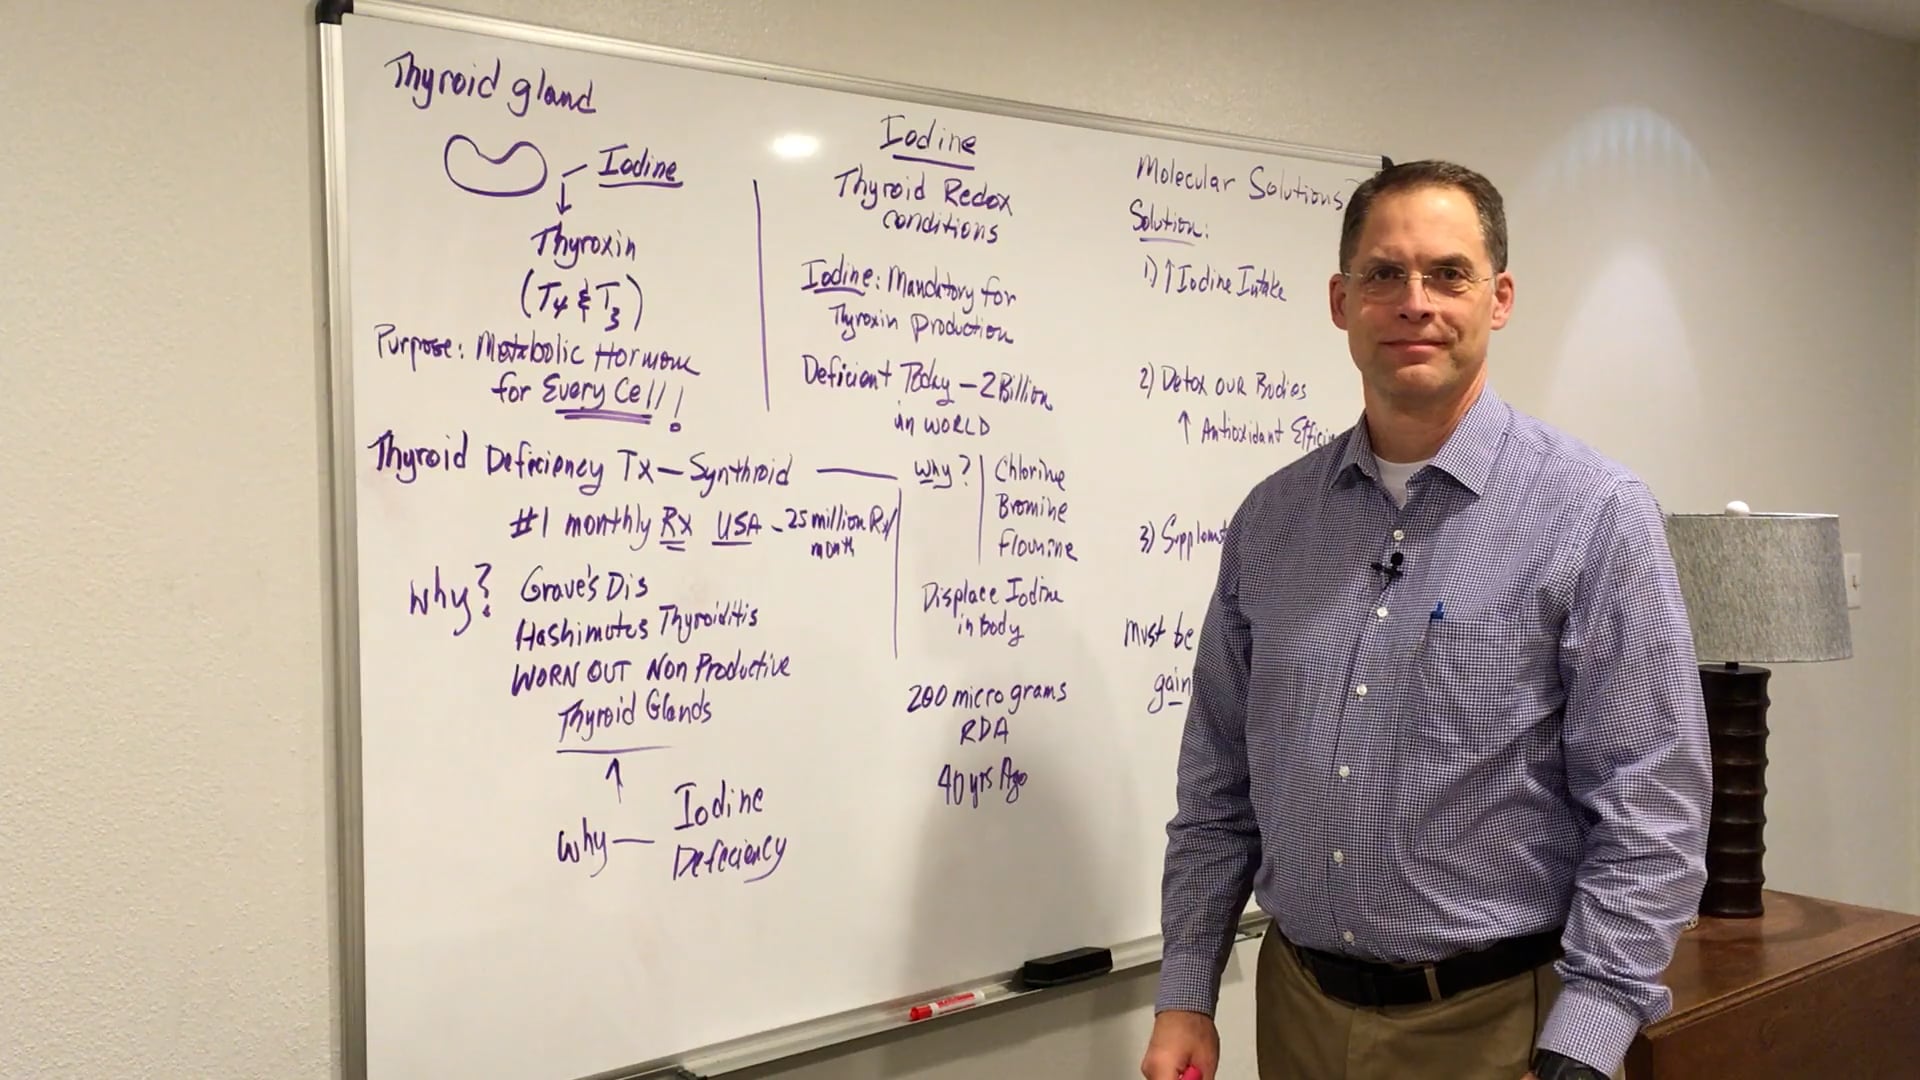 Thyroid gland
Iodine
Thyroxin
(T4 & T3)
Purpose: Metabolic Hormone
for Every Cell!
Thyroid Deficiency Tx — Synthroid
#1 monthly Rx USA - 25 million Rx/
month
Why?
Grave's Dis
Hashimotos Thyroiditis
WORN OUT Non Productive
Thyroid Glands
Why —
Iodine
Deficiency
Iodine
Thyroid Redox
conditions
Iodine: Mandatory for
Thyroxin production
Deficient Today — 2 Billion
in WORLD
Why?
Chlorine
Bromine
Flourine
Displace Iodine
in Body
200 micrograms
RDA
40 yrs Ago
Molecular Solutions
Solution:
1) ↑ Iodine Intake
2) Detox our Bodies
↑ Antioxidant
3)
Must be
gain